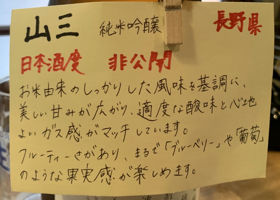 山三 純米吟醸 長野県
日本酒度 非公開
お米由来のしっかりした風味を基調に、
美しい甘みが広がり、適度な酸味と心地
よいガス感がマッチしています。
フルーティーさがあり、まるで「ブルーベリー」や「葡萄」
のような果実感が楽しめます。